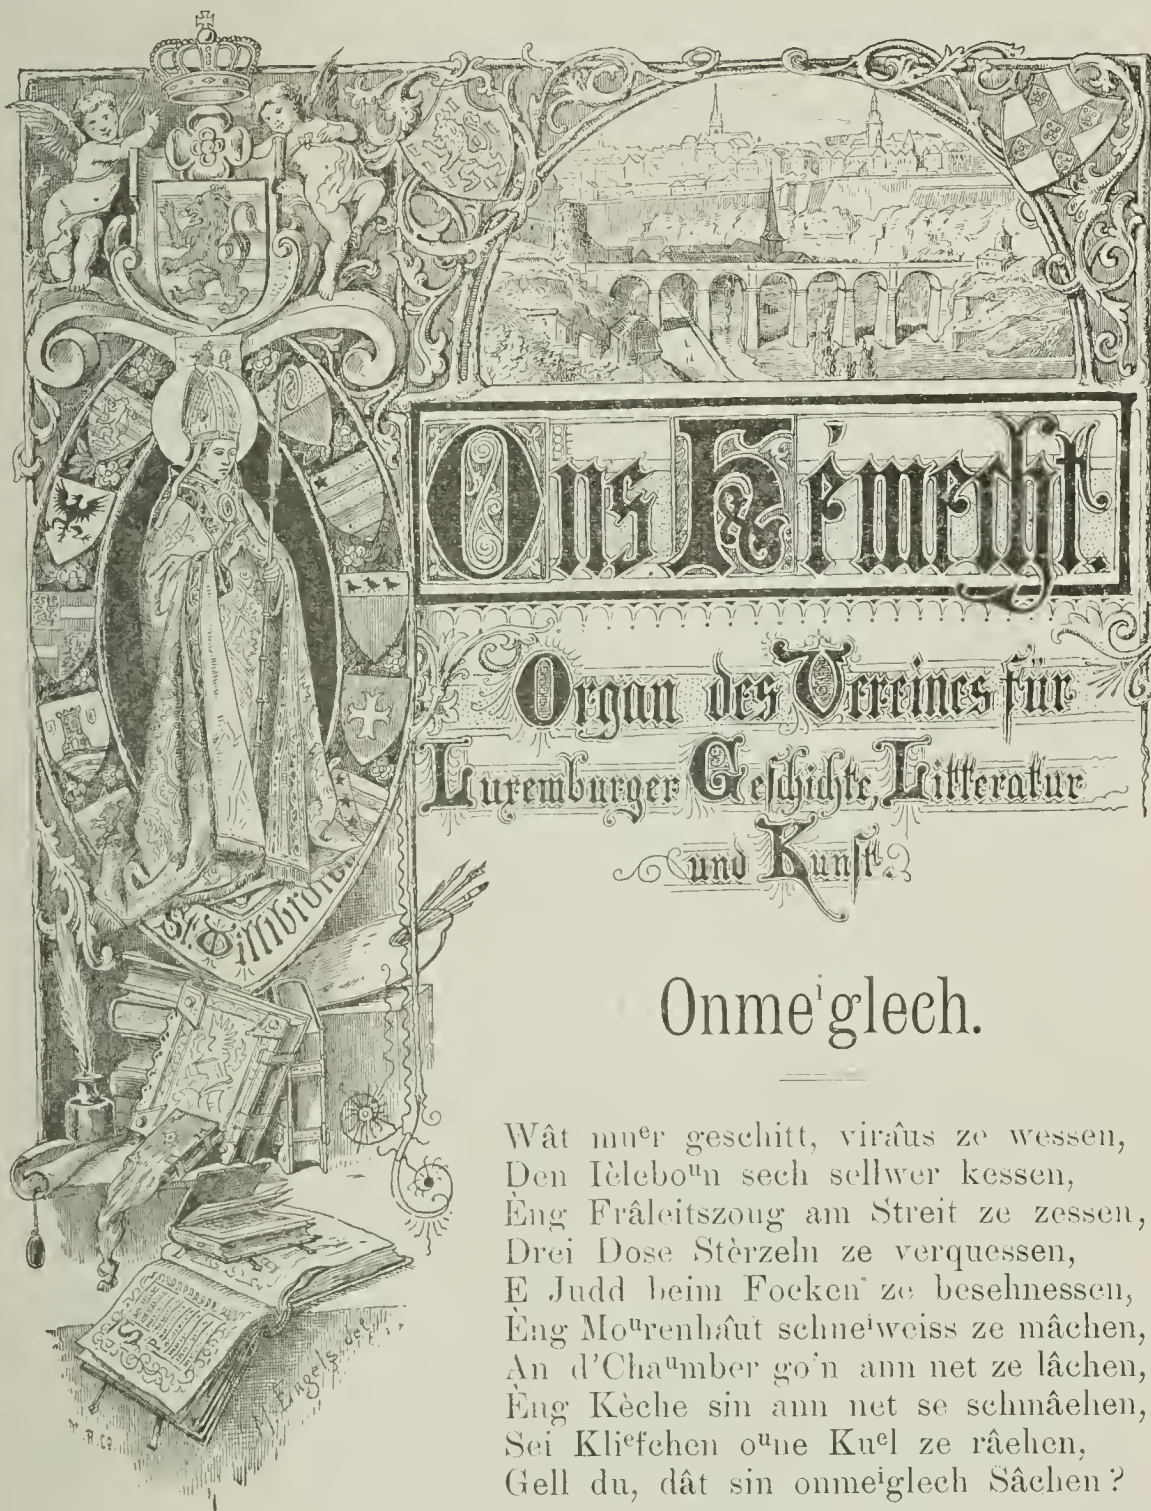 Ons Hémecht.
Organ des Vereines für
Luxemburger Geschichte, Litteratur
und Kunst
St. Willibrord
Onmeⁱglech.
Wât muᵉr geschitt, virâus ze wessen,
Den Ièleboᵘn sech sellwer kessen,
Èng Frâleitszoug am Streit ze zessen,
Drei Dose Stèrzeln ze verquessen,
E Judd beim Focken ze beschnessen,
Èng Moᵘrenhâut schneⁱweiss ze mâchen,
An d'Chaᵘmber go'n ann net ze lâchen,
Èng Kèche sin ann net se schmâchen,
Sei Kliᵉfchen oᵘne Kuᵉl ze râchen,
Gell du, dât sin onmeⁱglech Sâchen?
M. Engels del.